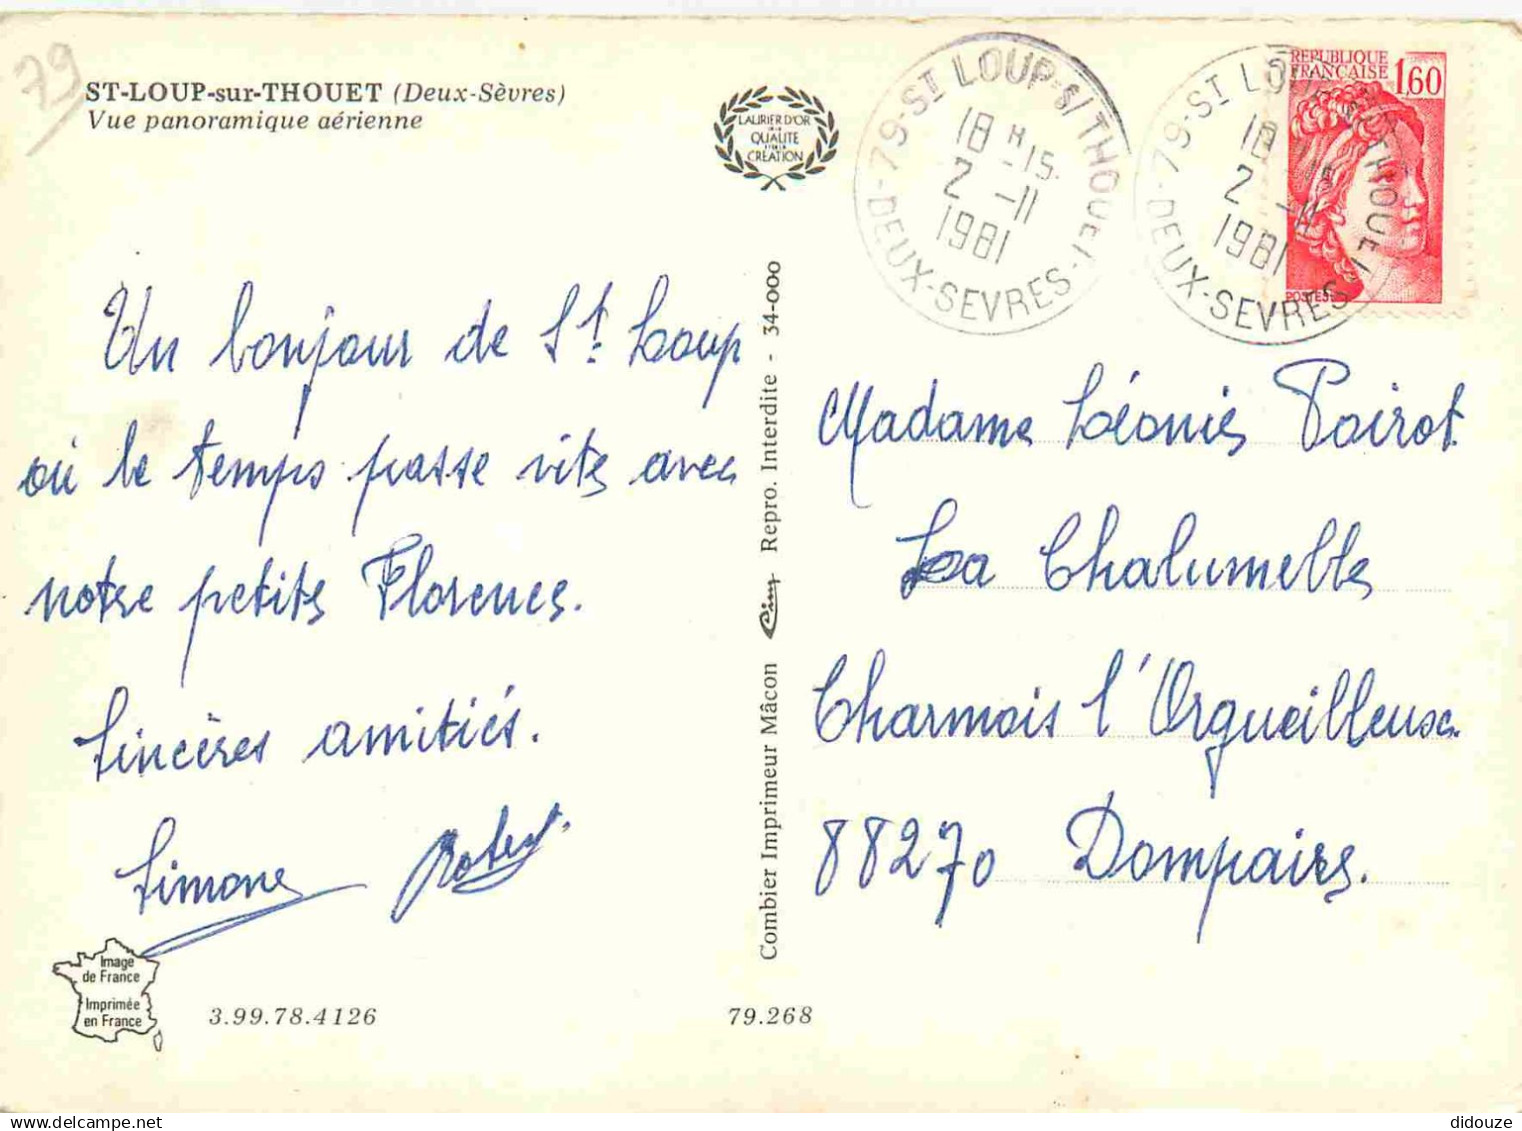 79
ST-LOUP-sur-THOUET (Deux-Sèvres)
Vue panoramique aérienne
LAURIER D'OR
DE LA
QUALITÉ
ET DE LA
CRÉATION
79-ST LOUP-S/THOUET
18 H -15.
2 -11
1981
-DEUX-SEVRES-
79-ST LOUP-S/THOUET
18 H -15.
2 -11
1981
-DEUX-SEVRES-
REPUBLIQUE
FRANCAISE
1,60
POSTES
Un bonjour de St. Loup
où le temps passe vite avec
notre petite Florence.
Sincères amitiés.
Simone
Image
de France
Imprimée
en France
3.99.78.4126
79.268
Combier Imprimeur Mâcon Cim Repro. Interdite - 34-000
Madame Léonie Poirot
La Chalumelle
Charmois l'Orgueilleux
88270 Dompaire.
didouze